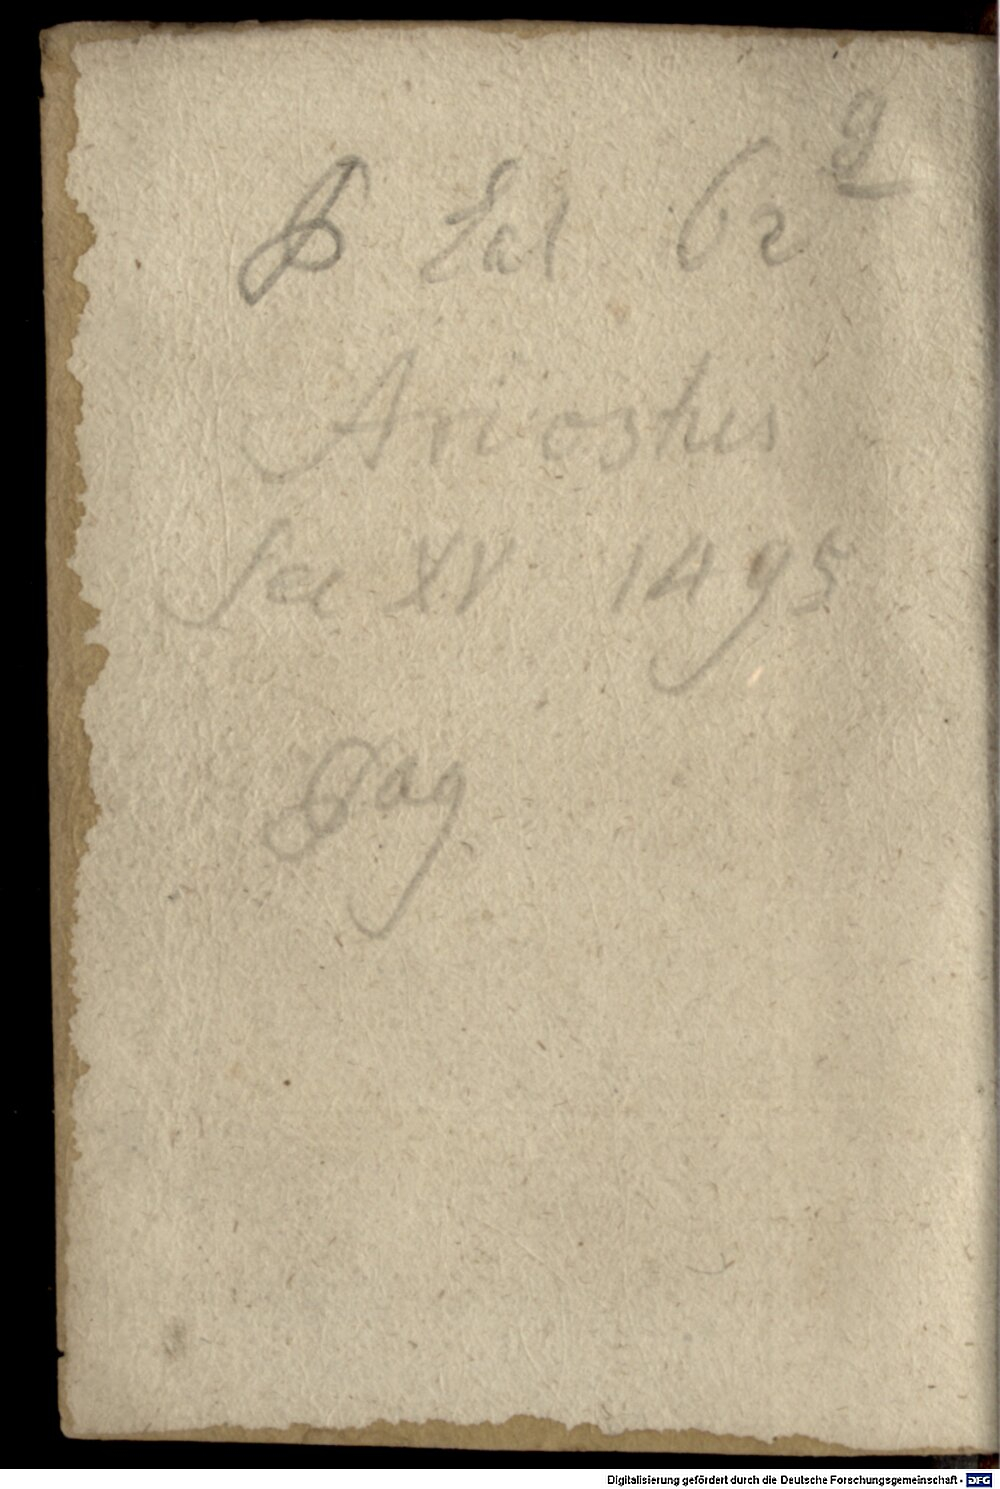 g
Lat 62
Ariostus
Sec XV 1495
Pag
Digitalisierung gefördert durch die Deutsche Forschungsgemeinschaft - DFG